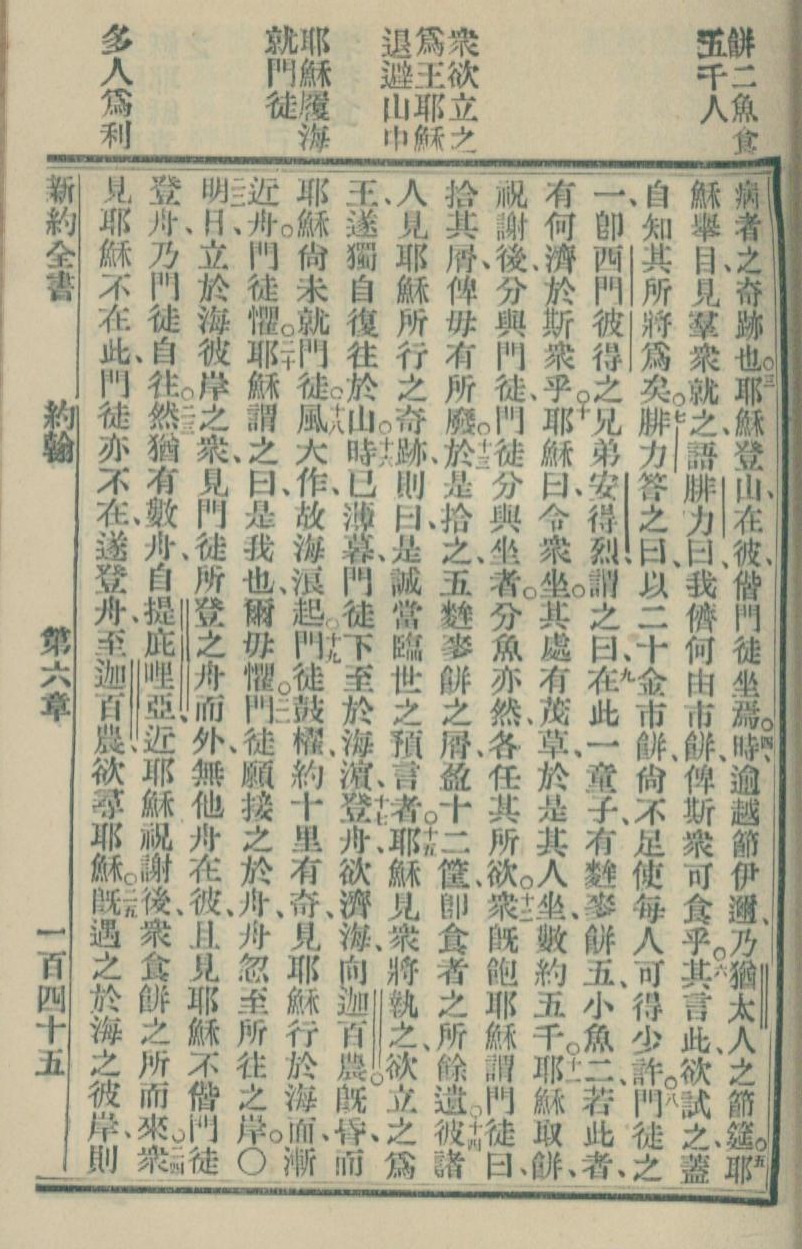 餅二魚食
五千人
衆欲立之
爲王耶穌
退避山中
耶穌履海
就門徒
多人爲利
病者之奇跡也。三耶穌登山、在彼、偕門徒坐焉。四時、逾越節伊邇、乃猶太人之節筵。五耶
穌舉目、見羣衆就之、語腓力曰、我儕何由市餅、俾斯衆可食乎。六其言此、欲試之、蓋
自知其所將爲矣。七腓力答之曰、以二十金市餅、尙不足使每人可得少許。八門徒之
一、卽西門彼得之兄弟安得烈、謂之曰、九在此一童子、有麰麥餅五、小魚二、若此者、
有何濟於斯衆乎。十耶穌曰、令衆坐。其處有茂草、於是其人坐、數約五千。十一耶穌取餅、
祝謝後、分與門徒、門徒分與坐者。分魚亦然、各任其所欲。十二衆旣飽、耶穌謂門徒曰、
拾其屑、俾毋有所廢。十三於是拾之、五麰麥餅之屑、盈十二筐、卽食者之所餘遺。十四彼諸
人見耶穌所行之奇跡、則曰、是誠當臨世之預言者。十五耶穌見衆將執之、欲立之爲
王、遂獨自復往於山。十六時已薄暮、門徒下至於海濱、十七登舟、欲濟海、向迦百農。旣昏、而
耶穌尙未就門徒。十八風大作、故海浪起。十九門徒鼓櫂、約十里有奇、見耶穌行於海面、漸
近舟。門徒懼。二十耶穌謂之曰、是我也、爾毋懼。二一門徒願接之於舟、舟忽至所往之岸。〇
二二明日、立於海彼岸之衆、見門徒所登之舟而外、無他舟在彼、且見耶穌不偕門徒
登舟、乃門徒自往。二三然猶有數舟、自提庇哩亞、近耶穌祝謝後、衆食餅之所而來。二四衆
見耶穌不在此、門徒亦不在、遂登舟、至迦百農、欲尋耶穌。二五旣遇之於海之彼岸、則
新約全書
約翰
第六章
一百四十五